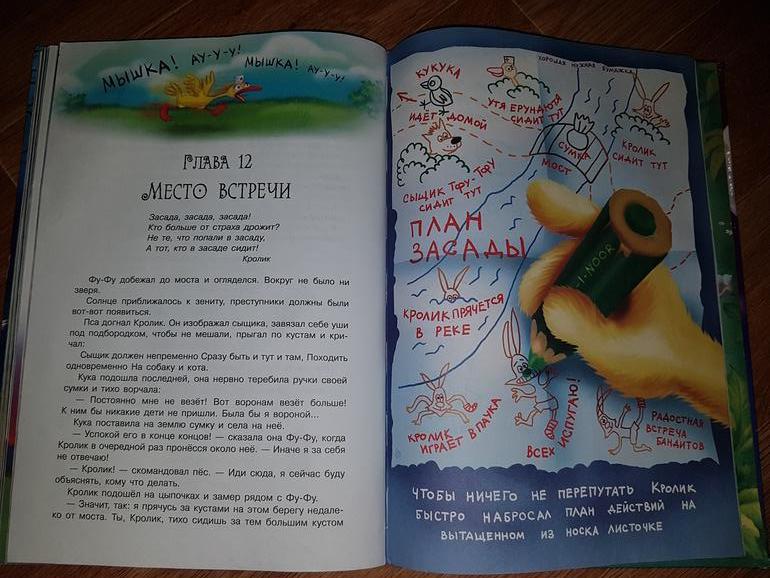 МЫШКА! АУ-У-У! МЫШКА! АУ-У-У!
ГЛАВА 12
МЕСТО ВСТРЕЧИ
Засада, засада, засада!
Кто больше от страха дрожит?
Не те, что попали в засаду,
А тот, кто в засаде сидит!
Кролик
Фу-Фу добежал до моста и огляделся. Вокруг не было ни
зверя.
Солнце приближалось к зениту, преступники должны были
вот-вот появиться.
Пса догнал Кролик. Он изображал сыщика, завязал себе уши
под подбородком, чтобы не мешали, прыгал по кустам и кри-
чал:
Сыщик должен непременно Сразу быть и тут и там, Походить
одновременно На собаку и кота.
Кука подошла последней, она нервно теребила ручки своей
сумки и тихо ворчала:
— Постоянно мне не везёт! Вот воронам везёт больше!
К ним бы никакие дети не пришли. Была бы я вороной...
Кука поставила на землю сумку и села на неё.
— Успокой его в конце концов! — сказала она Фу-Фу, когда
Кролик в очередной раз пронёсся около неё. — Иначе я за себя
не отвечаю!
— Кролик! — скомандовал пёс. — Иди сюда, я сейчас буду
объяснять, кому что делать.
Кролик подошёл на цыпочках и замер рядом с Фу-Фу.
— Значит, так: я прячусь за кустами на этом берегу недале-
ко от моста. Ты, Кролик, тихо сидишь за тем большим кустом
ХОРОШАЯ НУЖНАЯ БУМАЖКА
КУКУКА
ИДЁТ ДОМОЙ
УТЯ ЕРУНДЮТЯ
СИДИТ ТУТ
СУМКА
МОСТ
КРОЛИК
СИДИТ ТУТ
СЫЩИК ТФУ-ТФУ
СИДИТ ТУТ
ПЛАН
ЗАСАДЫ
-I-NOOR
КРОЛИК ПРЯЧЕТСЯ
В РЕКЕ
КРОЛИК
ИГРАЕТ В ПАУКА
ВСЕХ ИСПУГАЮ!
РАДОСТНАЯ
ВСТРЕЧА
БАНДИТОВ
ЧТОБЫ НИЧЕГО НЕ ПЕРЕПУТАТЬ КРОЛИК
БЫСТРО НАБРОСАЛ ПЛАН ДЕЙСТВИЙ НА
ВЫТАЩЕННОМ ИЗ НОСКА ЛИСТОЧКЕ